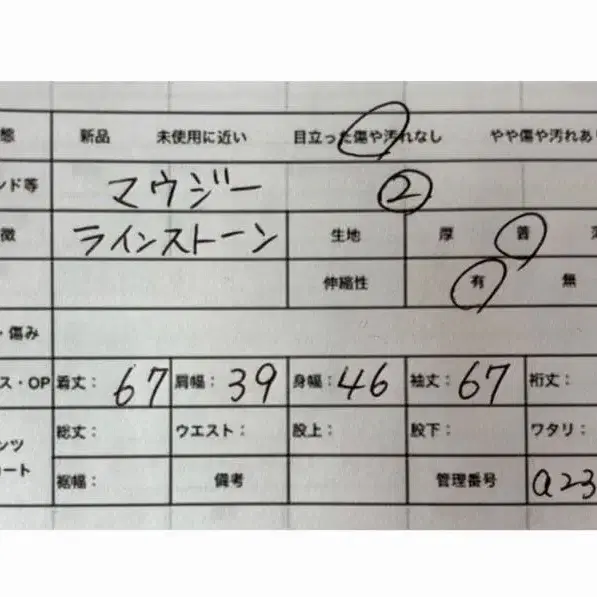 態 新品 未使用に近い 目立った傷や汚れなし やや傷や汚れあ
ンド等 マウジー ②
徴 ラインストーン 生地 厚 普
伸縮性 有 無
・傷み
ス・OP 着丈： 67 肩幅： 39 身幅： 46 袖丈： 67 裄丈：
総丈： ウエスト： 股上： 股下： ワタリ：
ンツ
コート
裾幅： 備考 管理番号 a23